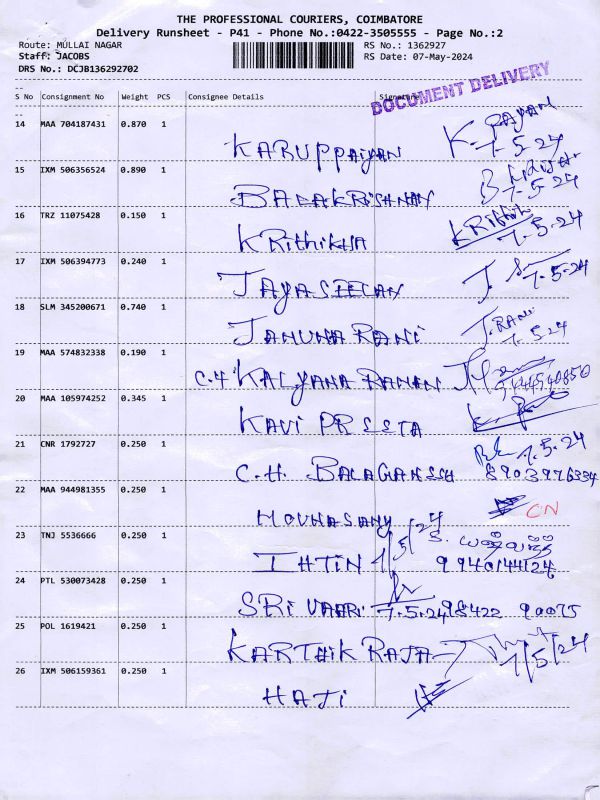 THE PROFESSIONAL COURIERS, COIMBATORE
Delivery Runsheet - P41 - Phone No.:0422-3505555 - Page No.:2
Route: MULLAI NAGAR RS No.: 1362927
Staff: JACOBS RS Date: 07-May-2024
DRS No.: DCJB136292702
DOCUMENT DELIVERY
--
S No Consignment No Weight PCS Consignee Details Signature
--
14 MAA 704187431 0.870 1
KARUPPAIYAN K. PAYAN 7-5-24
15 IXM 506356524 0.890 1
BALAKRISHNAN 7-5-24
16 TRZ 11075428 0.150 1
KRithikHA KRithik 7.5.24
17 IXM 506394773 0.240 1
JAYASEELAN J. 7-5-24
18 SLM 345200671 0.740 1
JAMUNA RANI J.RANI 7.5.24
19 MAA 574832338 0.190 1
C.H KALYANA RAMAN 9444540850
20 MAA 105974252 0.345 1
KAVI PREETA
21 CNR 1792727 0.250 1
7.5.24
C.H. BALAGANESH 8903976334
22 MAA 944981355 0.250 1
MOUNASAMY CN
23 TNJ 5536666 0.250 1
IHTIN 7/5/24 9940144124
24 PTL 530073428 0.250 1
SRI VAARI 7.5.24 98422 90075
25 POL 1619421 0.250 1
KARTHIK RAJA 7/5/24
26 IXM 506159361 0.250 1
HAJI